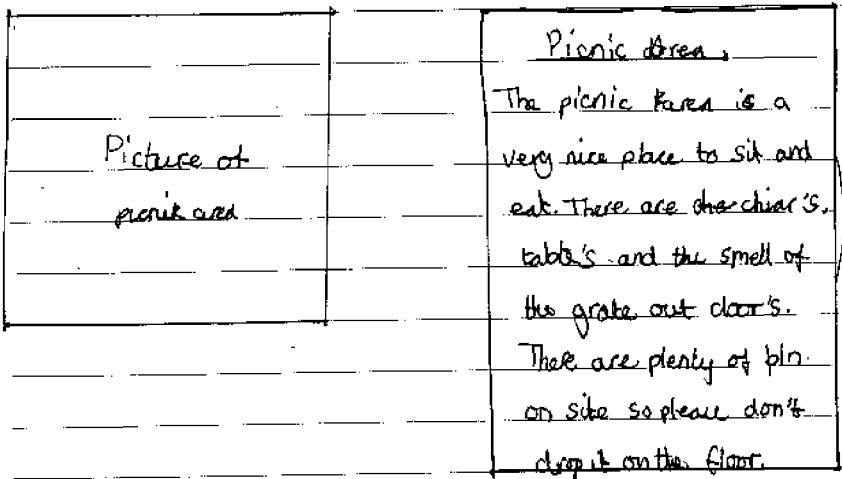 Picture of
picnik area
Picnic Area.
The picnic area is a
very nice place to sit and
eat. There are chiar's,
table's and the smell of
the grate out door's.
There are plenty of bin
on site so please don't
drop it on the floor.